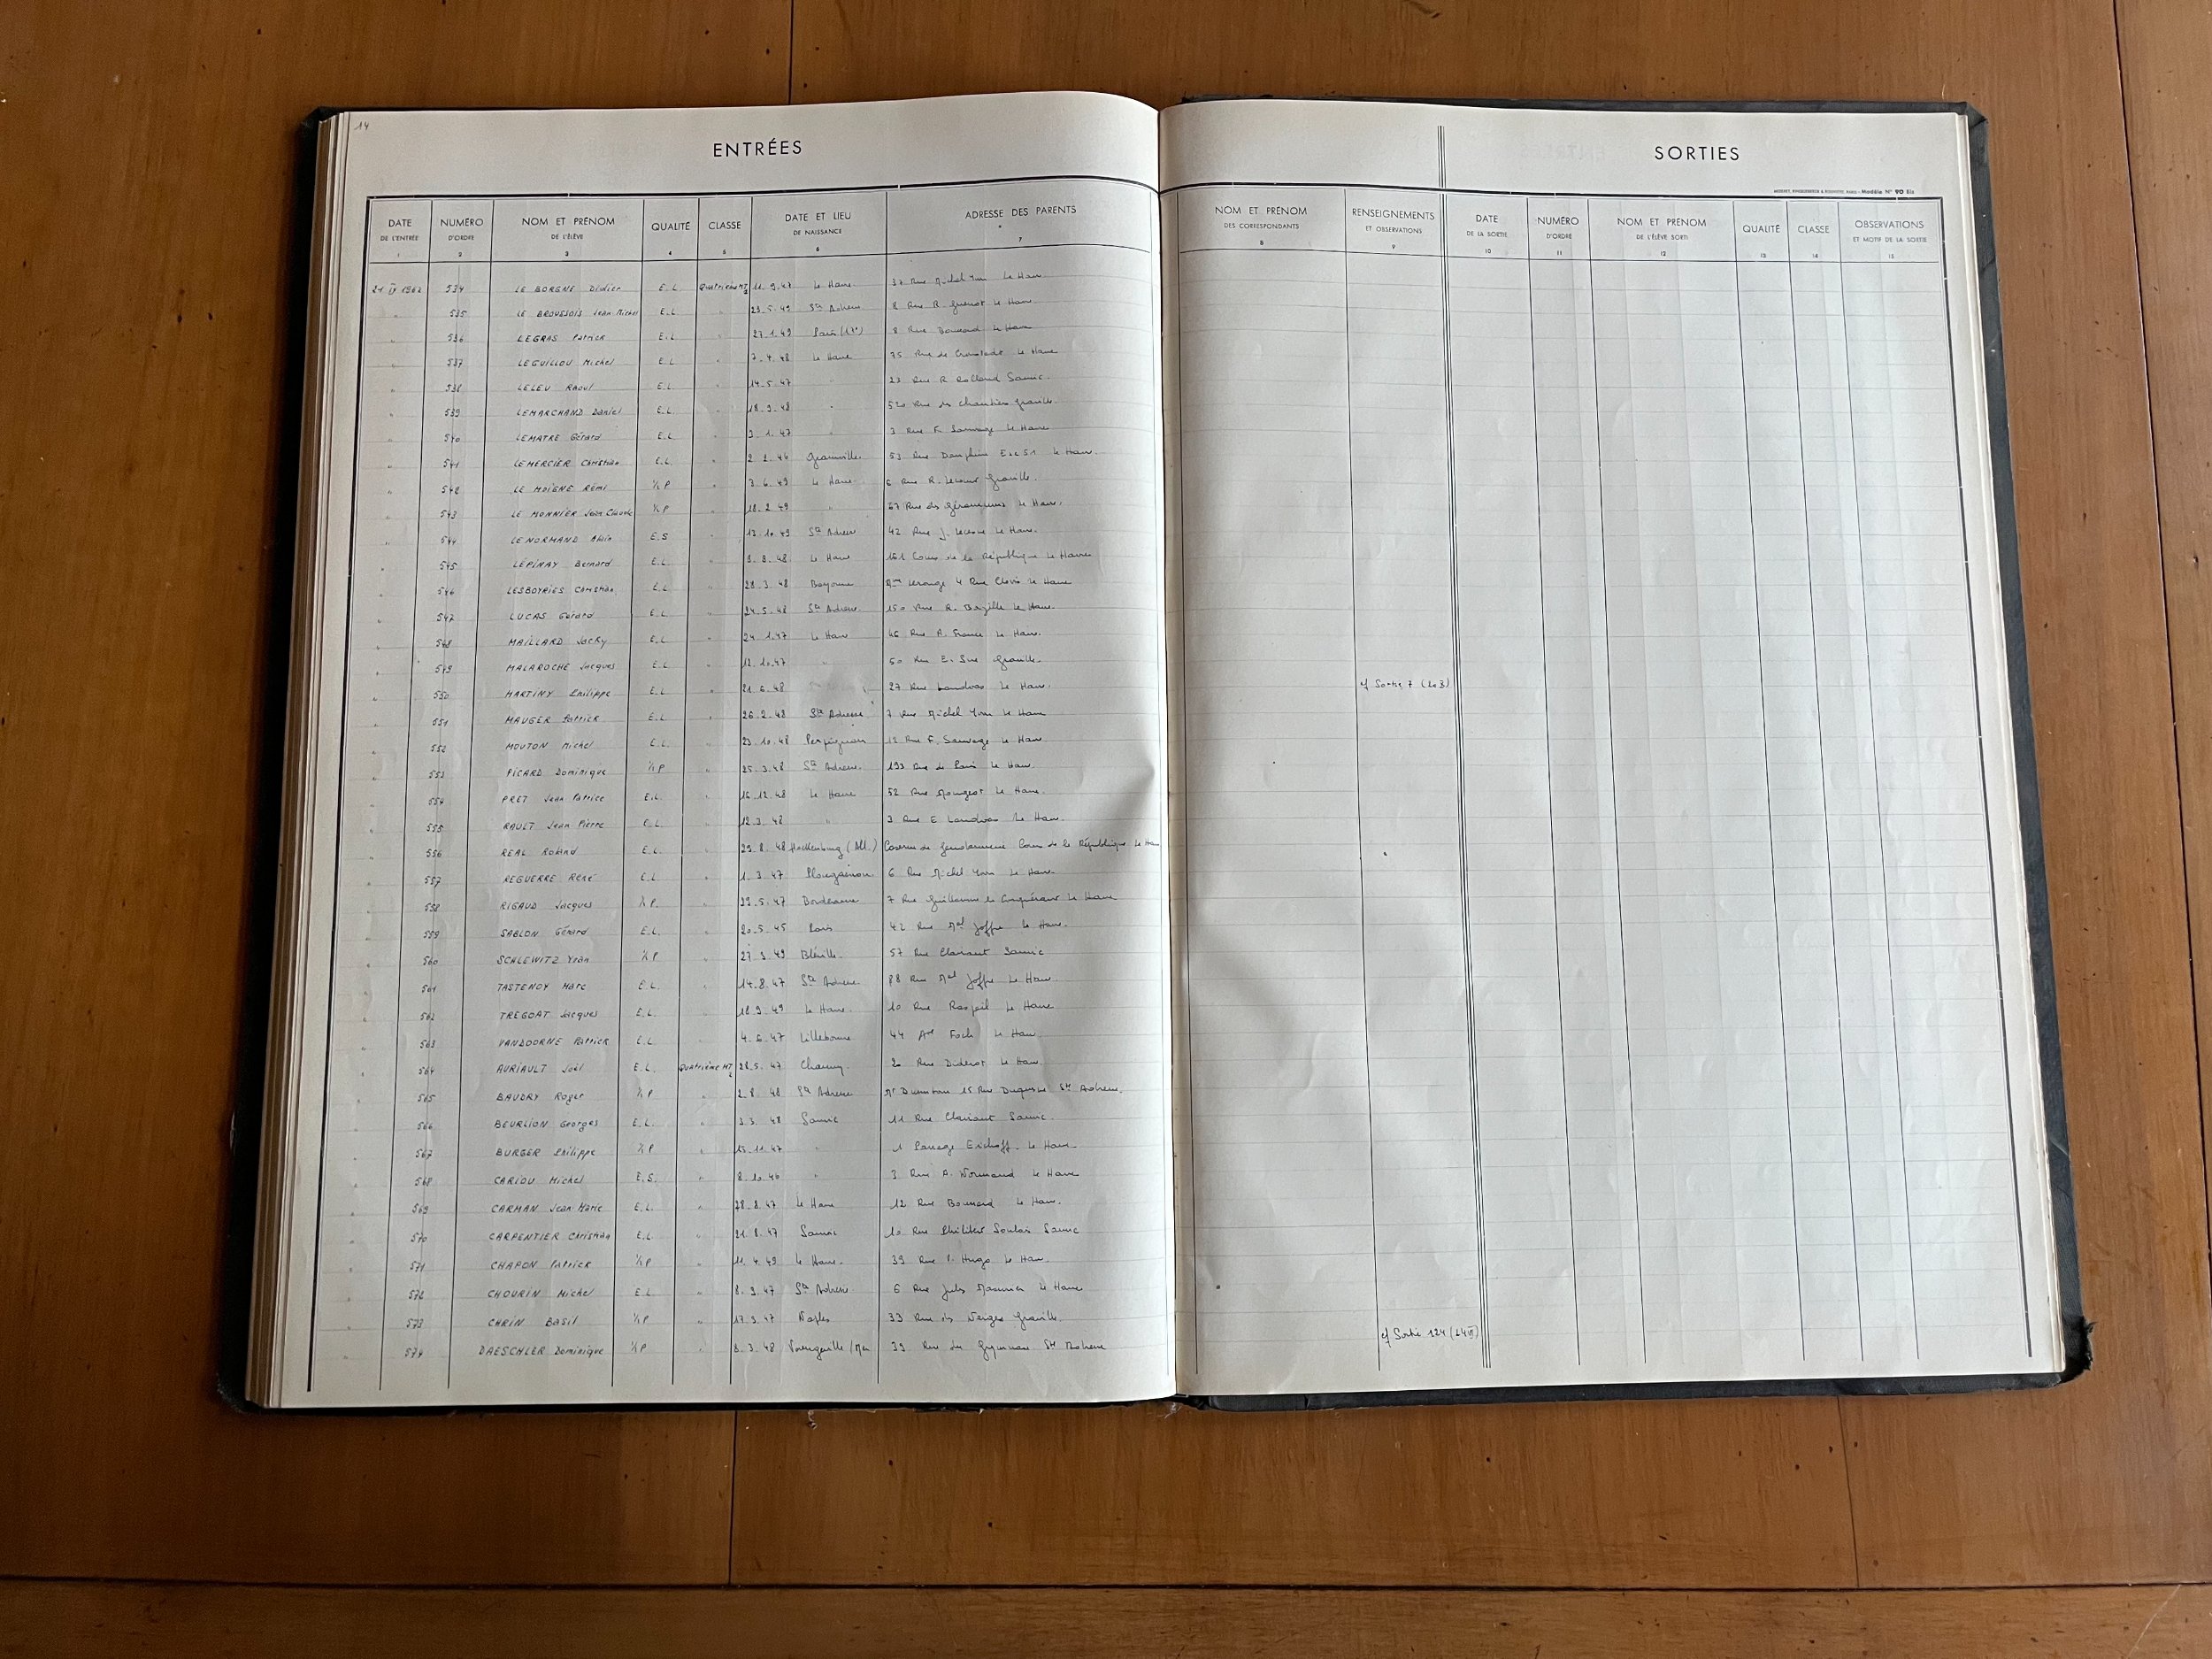 14
ENTRÉES
DATE DE L'ENTRÉE 1 NUMÉRO D'ORDRE 2 NOM ET PRÉNOM DE L'ÉLÈVE 3 QUALITÉ 4 CLASSE 5 DATE ET LIEU DE NAISSANCE 6 ADRESSE DES PARENTS 7
21 IX 1962 534 LE BORGNE Didier E.L. Quatrième 11.9.47 Le Havre 37 Rue Michel Yvon Le Havre
" 535 LE BROUSSOIS Jean Michel E.L " 29.5.49 Ste Adresse 8 Rue R. Guenot Le Havre
" 536 LEGRAS Patrick E.L " 27.1.49 Paris 8 Rue Le Havre
" 537 LEGUILLOU Michel E.L " 7.4.48 Le Havre 75 Rue de Cronstadt Le Havre
" 538 LELEU Raoul E.L. " 14.5.47 23 Rue R Rolland Sanvic
" 539 LEMARCHAND Daniel E.L. " 18.9.48 " 520 Rue des Chantiers Graville
" 540 LEMATRE Gérard E.L. " 9.1.47 " 3 Rue F. Sauvage Le Havre
" 541 LEMERCIER Christian E.L. " Grainville 53 Rue Dauphine Esc 51 Le Havre
" 542 LE MOIGNE Rémi ½ P " 3.6.49 Le Havre 6 Rue R. Lecour Graville
" 543 LE MONNIER Jean Claude ½ P " 18.2.49 " 67 Rue des Géraniums Le Havre
" 544 LENORMAND Alain E.S " 13.10.49 Ste Adresse 42 Rue J. Lecesne Le Havre
" 545 LÉPINAY Bernard E.L. " 9.8.48 Le Havre 161 Cours de la République Le Havre
" 546 LESBOYRIES Christian E.L " 28.3.48 Bayonne Mme Lerouge 4 Rue Clovis Le Havre
" 547 LUCAS Gérard E.L " 24.5.48 Ste Adresse 150 Rue Le Havre
" 548 MAILLARD Jacky E.L " 24.1.47 Le Havre 46 Rue A. France Le Havre
" 549 MALAROCHE Jacques E.L " 12.10.47 " 50 Rue E. Sue Graville
" 550 MARTINY Philippe E.L " 21.6.48 27 Rue Landros Le Havre
" 551 MAUGER Patrick E.L " 26.2.48 Ste Adresse 7 Rue Michel Yvon Le Havre
" 552 MOUTON Michel E.L. " 23.10.48 Perpignan 12 Rue F. Sauvage Le Havre
" 553 PICARD Dominique ½ P " 25.3.48 Ste Adresse 193 Rue de Paris Le Havre
" 554 PRET Jean Patrice E.L. " 16.12.48 Le Havre 52 Rue Mougeot Le Havre
" 555 RAULT Jean Pierre E.L. " 12.3.48 " 3 Rue E Landros Le Havre
" 556 REAL Roland E.L. " 29.8.48 (All.) Caserne de Gendarmerie Cours de la République Le Havre
" 557 REGUERRE René E.L " 1.3.47 Plouganou 6 Rue Michel Yvon Le Havre
" 558 RIGAUD Jacques ½ P. " 29.5.47 Bordeaux 7 Rue Guillaume le Conquérant Le Havre
" 559 SABLON Gérard E.L. " 20.5.45 Paris 42 Rue Mal Joffre Le Havre
" 560 SCHLEWITZ Yvan ½ P " 27.3.49 Bléville 57 Rue Clairaut Sanvic
" 561 TASTENOY Marc E.L. " 14.8.47 Ste Adresse 88 Rue Mal Joffre Le Havre
" 562 TREGOAT Jacques E.L. " 18.9.49 Le Havre 10 Rue Raspail Le Havre
" 563 VANDOORNE Patrick E.L. 4.6.47 Lillebonne 44 Ave Foch Le Havre
" 564 AURIAULT Joël E.L. Quatrième 28.5.47 Chauny 20 Rue Diderot Le Havre
" 565 BAUDRY Roger ½ P " 2.8.48 Ste Adresse 15 Rue Duquesne Ste Adresse
" 566 BEURLION Georges E.L. " 3.3.48 Sanvic 11 Rue Clairaut Sanvic
" 567 BURGER Philippe ½ P " 15.11.47 " 1 Passage Eichoff Le Havre
" 568 CARIOU Michel E.S. " 8.10.46 " 3 Rue A. Normand Le Havre
" 569 CARMAN Jean Marie E.L. " 28.8.47 Le Havre 12 Rue Le Havre
" 570 CARPENTIER Christian E.L " 21.8.47 Sanvic 10 Rue Sanvic
" 571 CHAPON Patrick ½ P " 11.4.49 Le Havre 39 Rue V. Hugo Le Havre
" 572 CHOURIN Michel E.L " 8.9.47 Ste Adresse 6 Rue Jules Masurier Le Havre
" 573 CHRIN Basil ½ P " 17.9.47 Naples 39 Rue des Verges Graville
" 574 DAESCHLER Dominique ½ P " 8.3.48 39 Rue du Gymnase Ste Adresse
SORTIES
Modèle N° 90 Bis
NOM ET PRÉNOM DES CORRESPONDANTS 8 RENSEIGNEMENTS ET OBSERVATIONS 9 DATE DE LA SORTIE 10 NUMÉRO D'ORDRE 11 NOM ET PRÉNOM DE L'ÉLÈVE SORTI 12 QUALITÉ 13 CLASSE 14 OBSERVATIONS ET MOTIF DE LA SORTIE 15
cf Sortie 7
cf Sortie 124